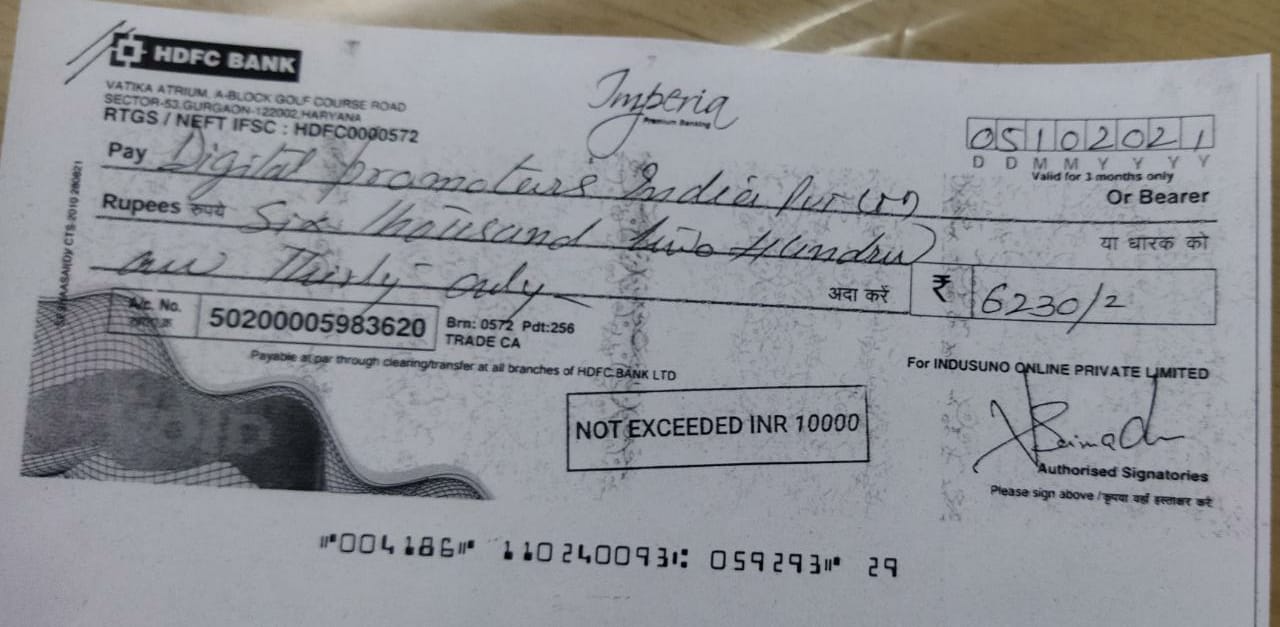 HDFC BANK
VATIKA ATRIUM, A-BLOCK GOLF COURSE ROAD
SECTOR-53, GURGAON-122002, HARYANA
RTGS / NEFT IFSC : HDFC0000572
Imperia
Premium Banking
05102021
D D M M Y Y Y Y
Valid for 3 months only
Pay Digital Promoters India Pvt
Or Bearer
Rupees रुपये Six Thousand two Hundred
या धारक को
Thirty only
अदा करें ₹ 6230/2
A/c. No. 50200005983620 Brn: 0572 Pdt:256
TRADE CA
Payable at par through clearing/transfer at all branches of HDFC BANK LTD
For INDUSUNO ONLINE PRIVATE LIMITED
NOT EXCEEDED INR 10000
VOID
Authorised Signatories
Please sign above / कृपया यहाँ हस्ताक्षर करे
⑈004186⑈ 110240093⑆ 059293⑈ 29